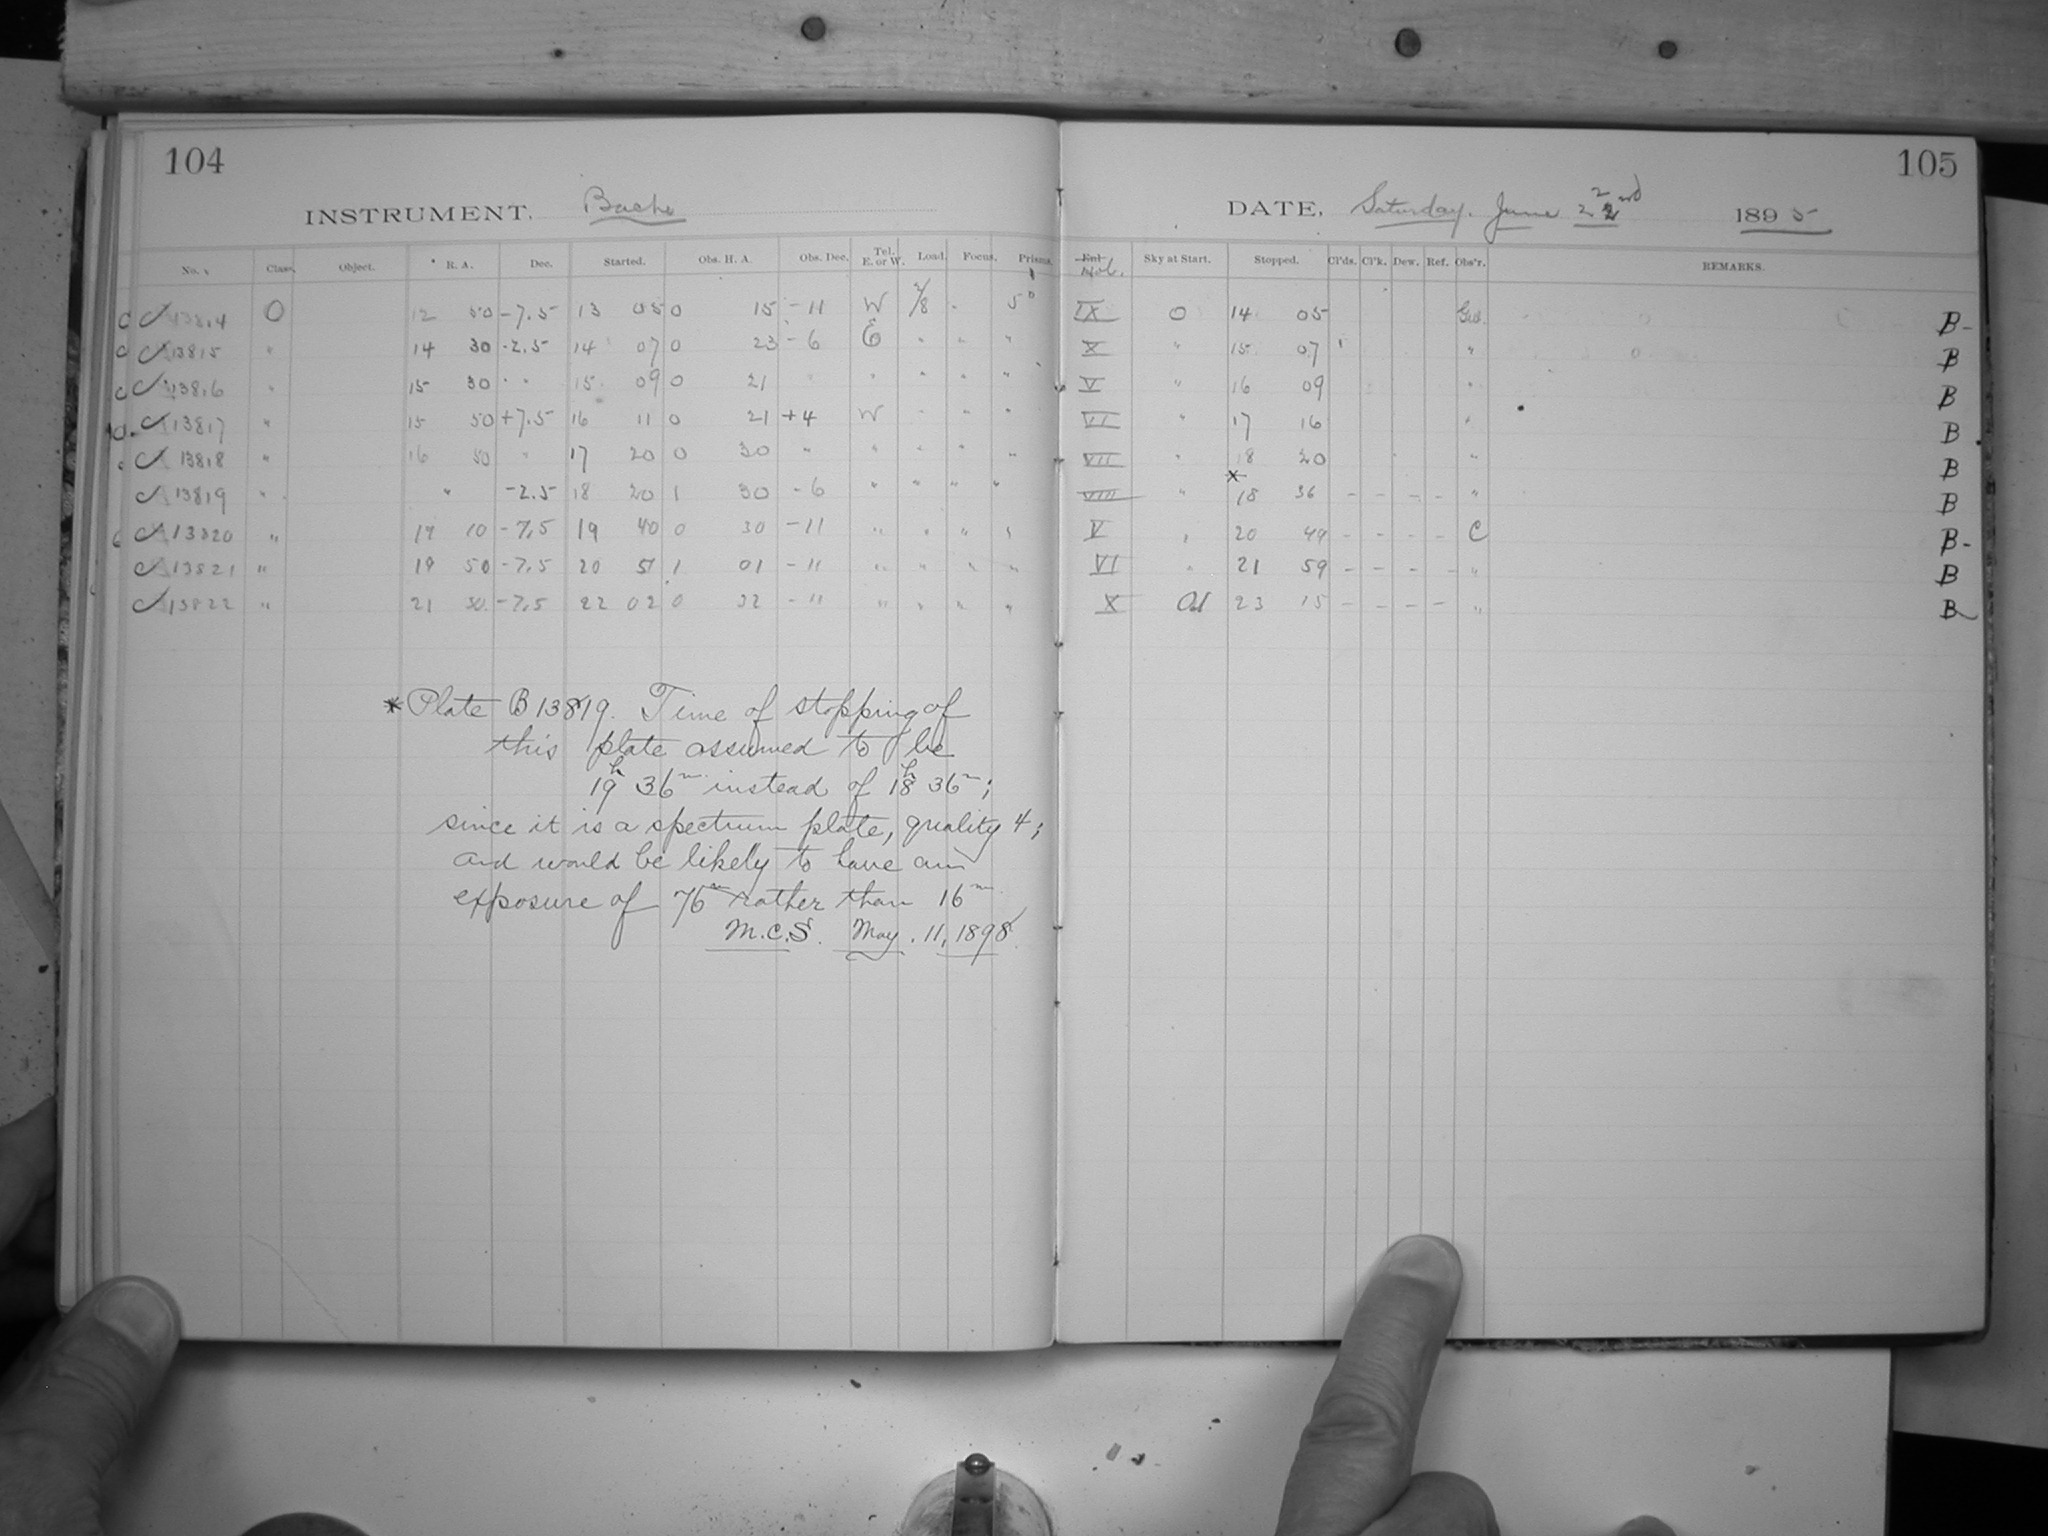 104
105
INSTRUMENT, Bache
DATE, Saturday, June 22nd 1895
No. Class. Object. R. A. Dec. Started. Obs. H. A. Obs. Dec. Tel. E. or W. Load. Focus. Prisms. Hol. Sky at Start. Stopped. Cl'ds. Cl'k. Dew. Ref. Obs'r. REMARKS.
C 13814 O 12 50 -7.5 13 05 0 15 -11 W 5° IX O 14 05 B-
C 13815 " 14 30 -2.5 14 07 0 23 -6 E " " " X " 15 07 " B
C 13816 " 15 30 " " 15 09 0 21 " " " " " V " 16 09 " B
13817 " 15 50 +7.5 16 11 0 21 +4 W " " " VI " 17 16 " B
13818 " 16 50 " 17 20 0 30 " " " " " VII " 18 20 " B
13819 " " -2.5 18 20 1 30 -6 " " " " VIII " * 18 36 - - - - " B
13820 " 19 10 -7.5 19 40 0 30 -11 " " " " V " 20 49 - - - - C B-
13821 " 19 50 -7.5 20 51 1 01 -11 " " " " VI " 21 59 - - - - " B
13822 " 21 30 -7.5 22 02 0 32 -11 " " " " X 23 15 - - - - " B
* Plate B 13819. Time of stopping of
this plate assumed to be
19h 36m instead of 18h 36m;
since it is a spectrum plate, quality 4;
and would be likely to have an
exposure of 76m rather than 16m
M.C.S. May. 11, 1898.